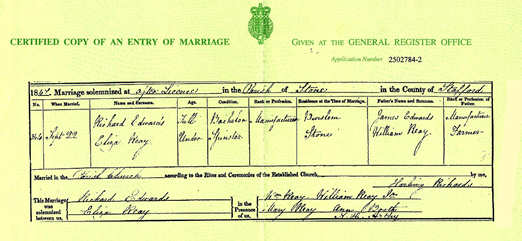 CERTIFIED COPY OF AN ENTRY OF MARRIAGE
GIVEN AT THE GENERAL REGISTER OFFICE
Application Number 2502784-2
Marriage solemnized at after Licence in the Parish of Stone in the County of Stafford
No. When Married. Name and Surname. Age. Condition. Rank or Profession. Residence at the Time of Marriage. Father's Name and Surname. Rank or Profession of Father
Sept Richard Edwards Full Bachelor Manufacturer Burslem James Edwards Manufacturer
Eliza Under Spinster Stone William Farmer
Married in the Parish Church according to the Rites and Ceremonies of the Established Church, by me,
Richards
This Marriage was solemnized between us, Richard Edwards Eliza in the Presence of us, Wm William
Mary Ann Booth